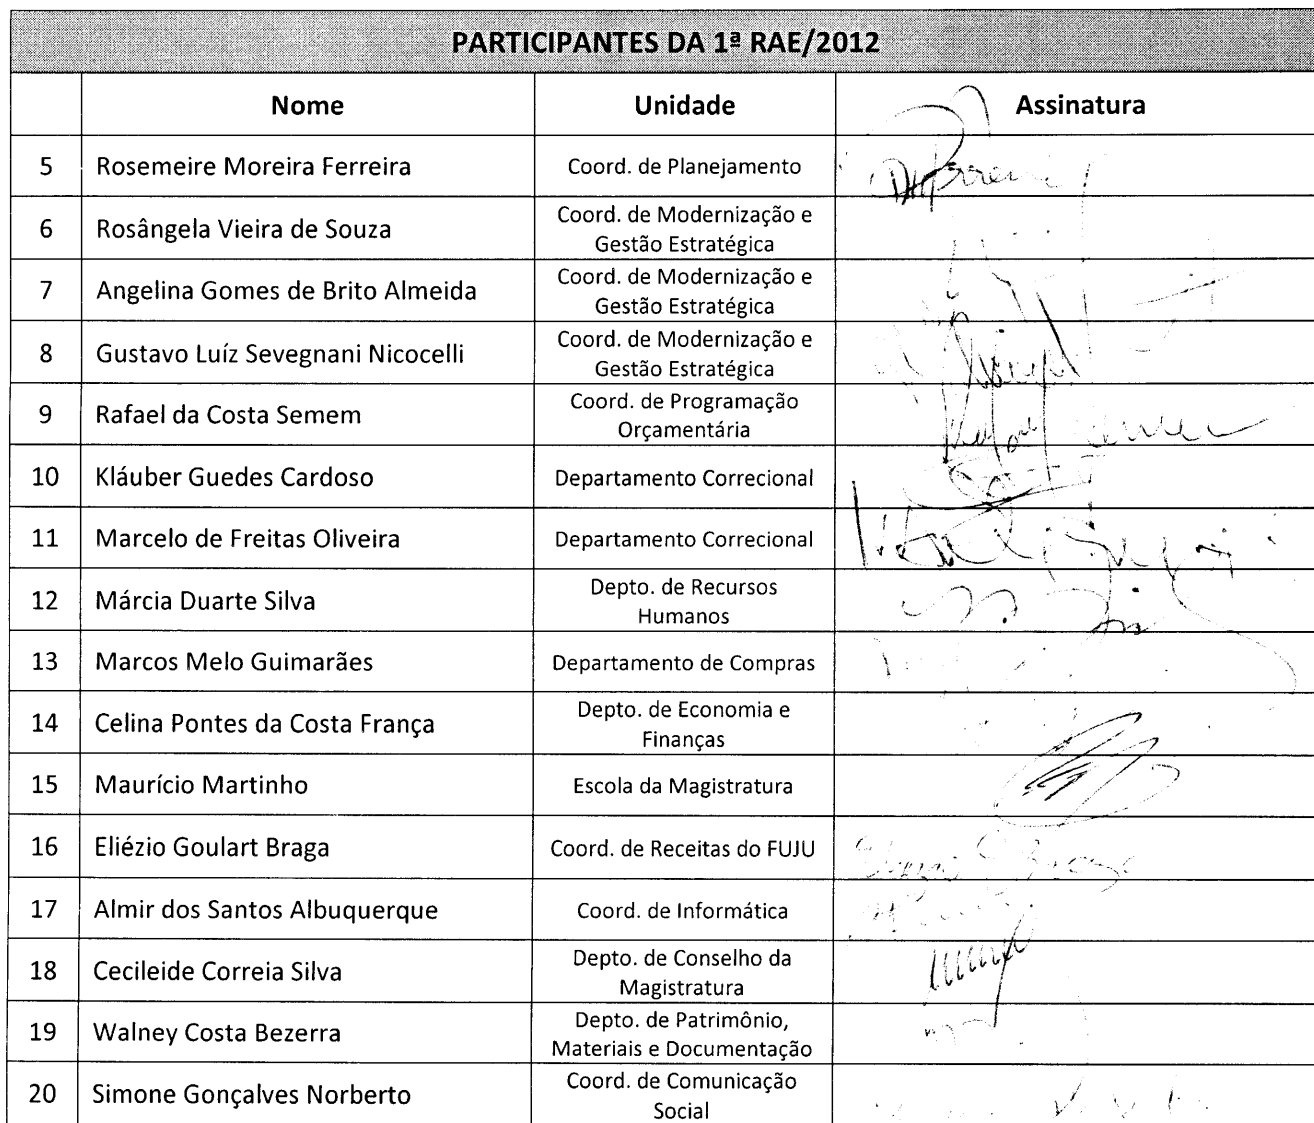 PARTICIPANTES DA 1ª RAE/2012
Nome Unidade Assinatura
5 Rosemeire Moreira Ferreira Coord. de Planejamento
6 Rosângela Vieira de Souza Coord. de Modernização e
Gestão Estratégica
7 Angelina Gomes de Brito Almeida Coord. de Modernização e
Gestão Estratégica
8 Gustavo Luíz Sevegnani Nicocelli Coord. de Modernização e
Gestão Estratégica
9 Rafael da Costa Semem Coord. de Programação
Orçamentária
10 Kláuber Guedes Cardoso Departamento Correcional
11 Marcelo de Freitas Oliveira Departamento Correcional
12 Márcia Duarte Silva Depto. de Recursos
Humanos
13 Marcos Melo Guimarães Departamento de Compras
14 Celina Pontes da Costa França Depto. de Economia e
Finanças
15 Maurício Martinho Escola da Magistratura
16 Eliézio Goulart Braga Coord. de Receitas do FUJU
17 Almir dos Santos Albuquerque Coord. de Informática
18 Cecileide Correia Silva Depto. de Conselho da
Magistratura
19 Walney Costa Bezerra Depto. de Patrimônio,
Materiais e Documentação
20 Simone Gonçalves Norberto Coord. de Comunicação
Social